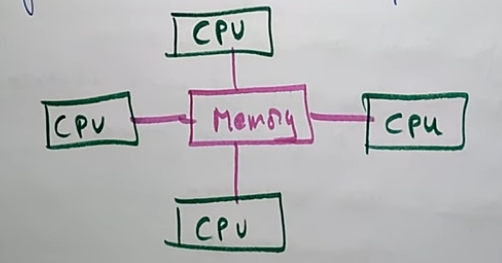 CPU
CPU Memory CPU
CPU